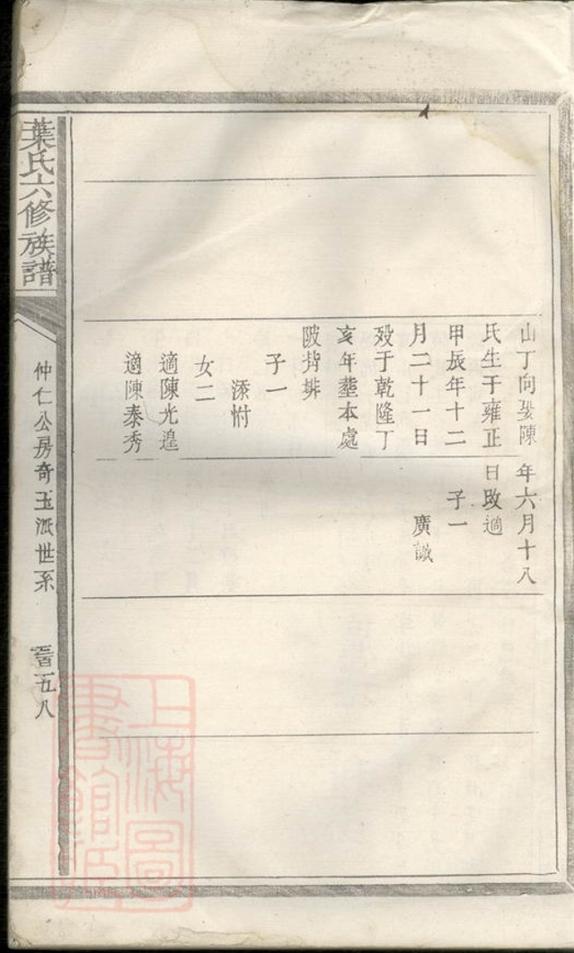 葉氏六修族譜
山丁向娶陳
氏生于雍正
甲辰年十二
月二十一日
殁于乾隆丁
亥年塟本處
陂背排
子一
添
女二
適陳光遑
適陳泰秀
年六月十八
日改適
子一
廣誠
仲仁公房奇玉派世系
五八
上海圖書館藏